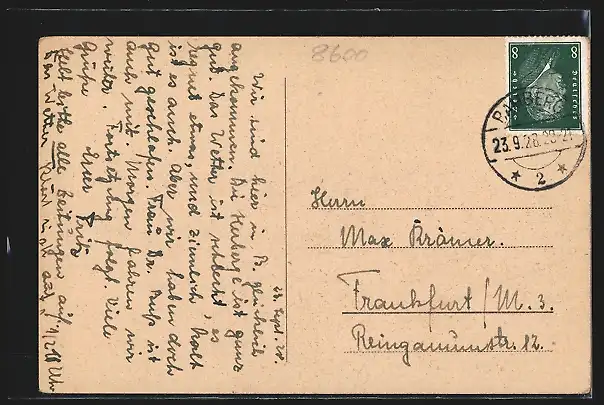 8600
23. Sept. 28.
Wir sind hier in B. glücklich
angekommen. Die Herberge ist ganz
gut. Das Wetter ist schlecht, es
regnet etwas, und ziemlich kalt
ist es auch. Aber wir haben doch
gut geschlafen. Frau Dr. ist
auch mit. Morgen fahren wir
weiter. Fortsetzung folgt. Viele
Grüße
Euer Fritz
Hebt bitte alle Zeitungen auf.
Das Wetter klärt sich auf. Uhr
8 8
Deutsches
Reich
BAMBERG
23.9.28
* 2 *
Herrn
Max Krämer.
Frankfurt/M. 3.
Reinganumstr. 12.